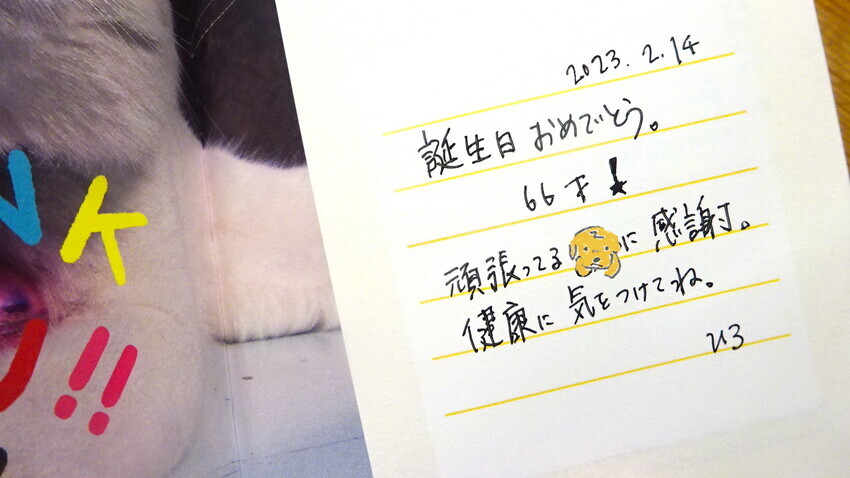 2023.2.14
誕生日おめでとう。
66才!
頑張ってるに感謝。
健康に気をつけてね。
ひろ
NK
U!!